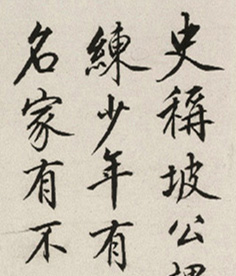 史稱坡公
練少年有
名家有不